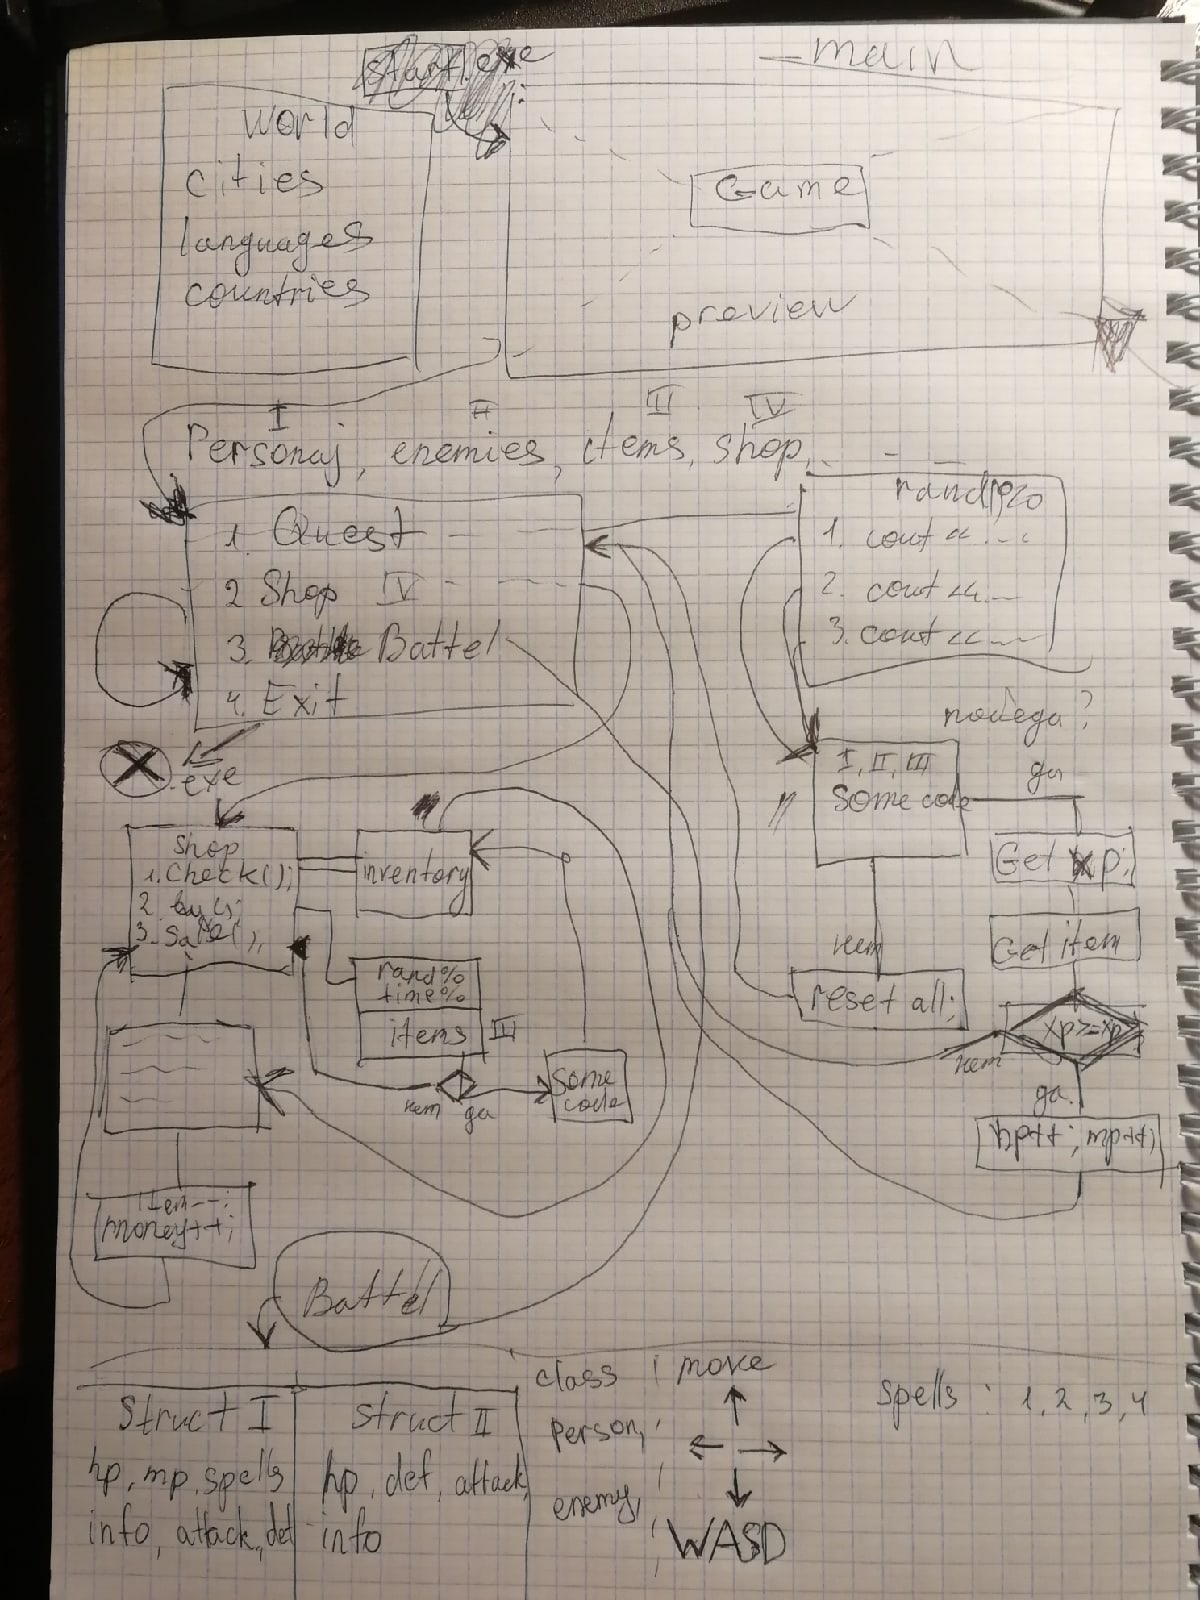 start.exe
— main
World
cities
languages
countries
Game
preview
I II III IV
Personaj, enemies, items, shop, . - —
1. Quest
2 Shop IV
3. Battel
4. Exit
.exe
rand%
1. cout << ...
2. cout << ...
3. cout << ...
победа?
I, II, III
some code
да
Get xp;
Get item
нет
reset all;
xp>=xp
нет
да
hp++; mp++;
shop
1. Check();
2 buy();
3. Sale();
inventory
rand%
time%
items III
нет да
some
code
item--;
money++;
Battel
Struct I
hp, mp, spells
info, attack, def
struct II
hp, def, attack,
info
class
person,
enemy,
move
WASD
spells : 1, 2, 3, 4